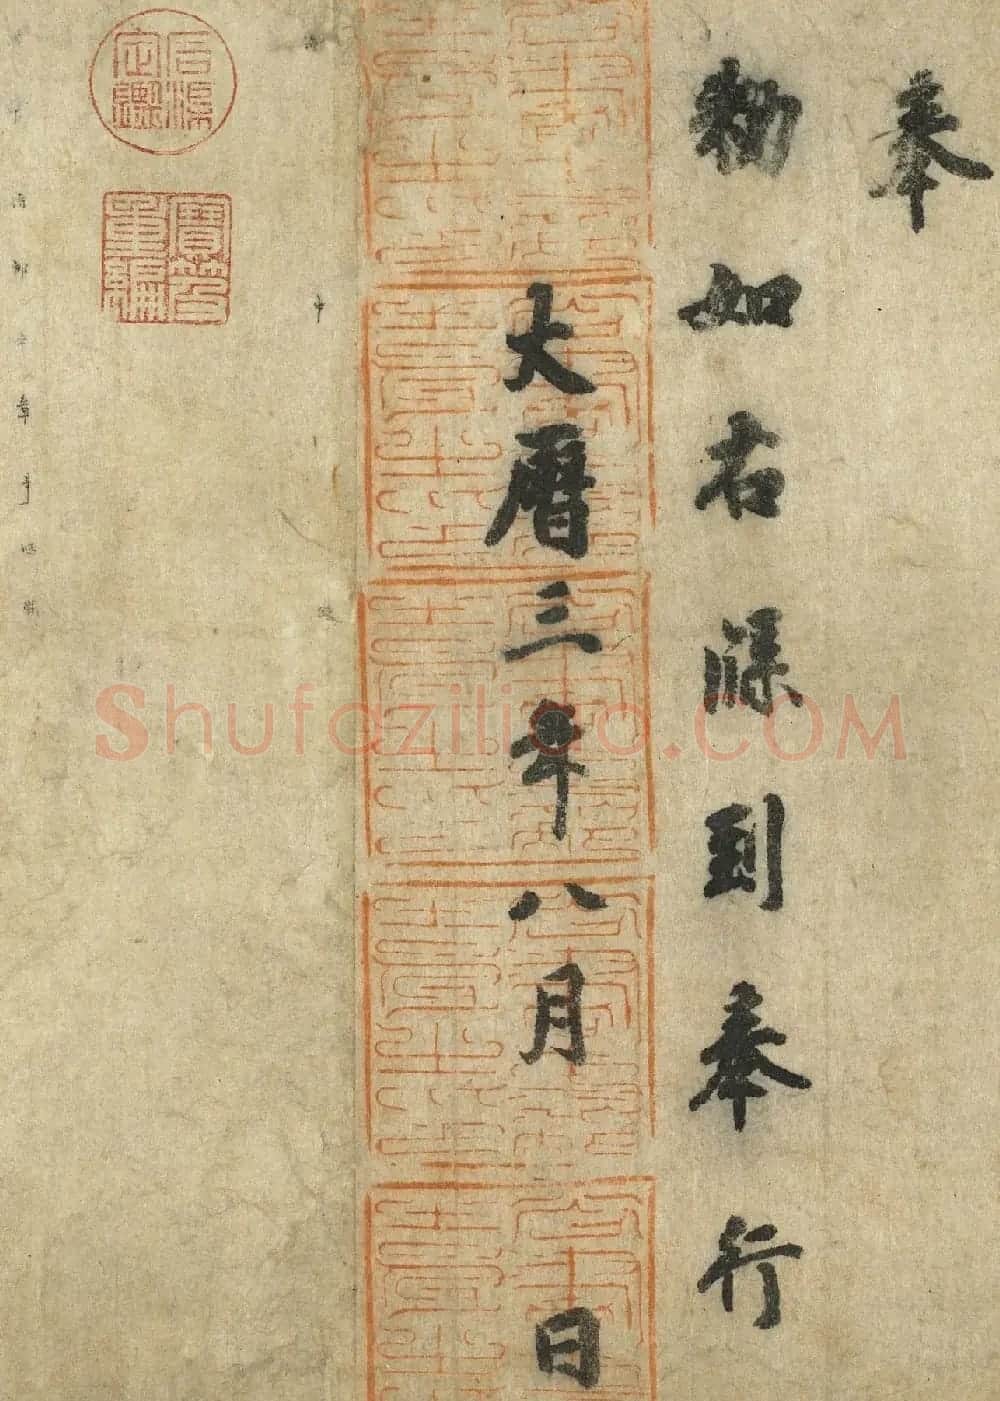 奉
勅如右牒到奉行
大曆三年八月 日
石渠定鑑
寶笈重編
Shufaziliao.COM